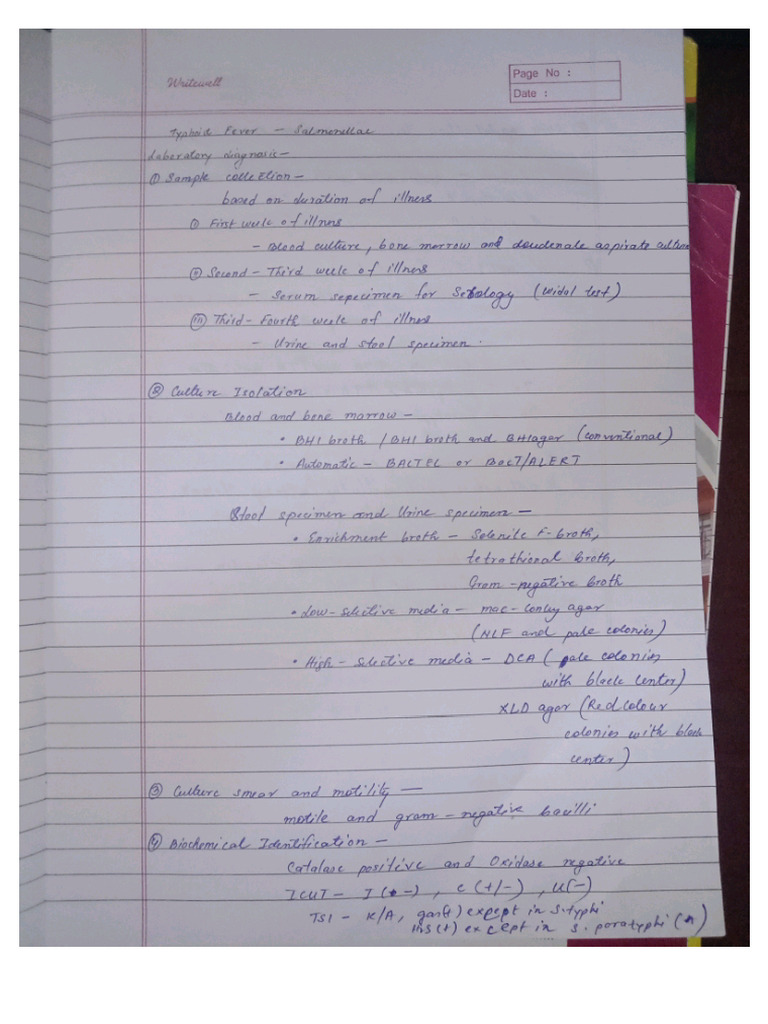 Writewell
Page No :
Date :
Typhoid Fever – Salmonellae
Laboratory diagnosis –
① Sample collection –
based on duration of illness
① First week of illness
– Blood culture, bone morrow and doudenale aspirate culture
② Second – Third week of illness
– Serum sepecimen for Serology (widal test)
③ Third – Fourth week of illness
– Urine and stool specimen.
② Culture Isolation
Blood and bone marrow –
• BHI broth / BHI broth and BHI agar (conventional)
• Automatic – BACTEC or BacT/ALERT
Stool specimen and Urine specimen –
• Enrichment broth – Selenite F-broth,
tetrathional broth,
Gram-negative broth
• Low-selective media – mac-conkey agar
(NLF and pale colonies)
• High-selective media – DCA ( pale colonies
with black center)
XLD agar (Red colour
colonies with black
center)
③ Culture smear and motility –
motile and gram-negative bacilli
④ Biochemical Identification –
Catalase positive and Oxidase negative
ICUT – I(-) , C(+/-) , U(-)
TSI – K/A, gas(+) except in S.typhi
H₂S(+) except in S. paratyphi (A)